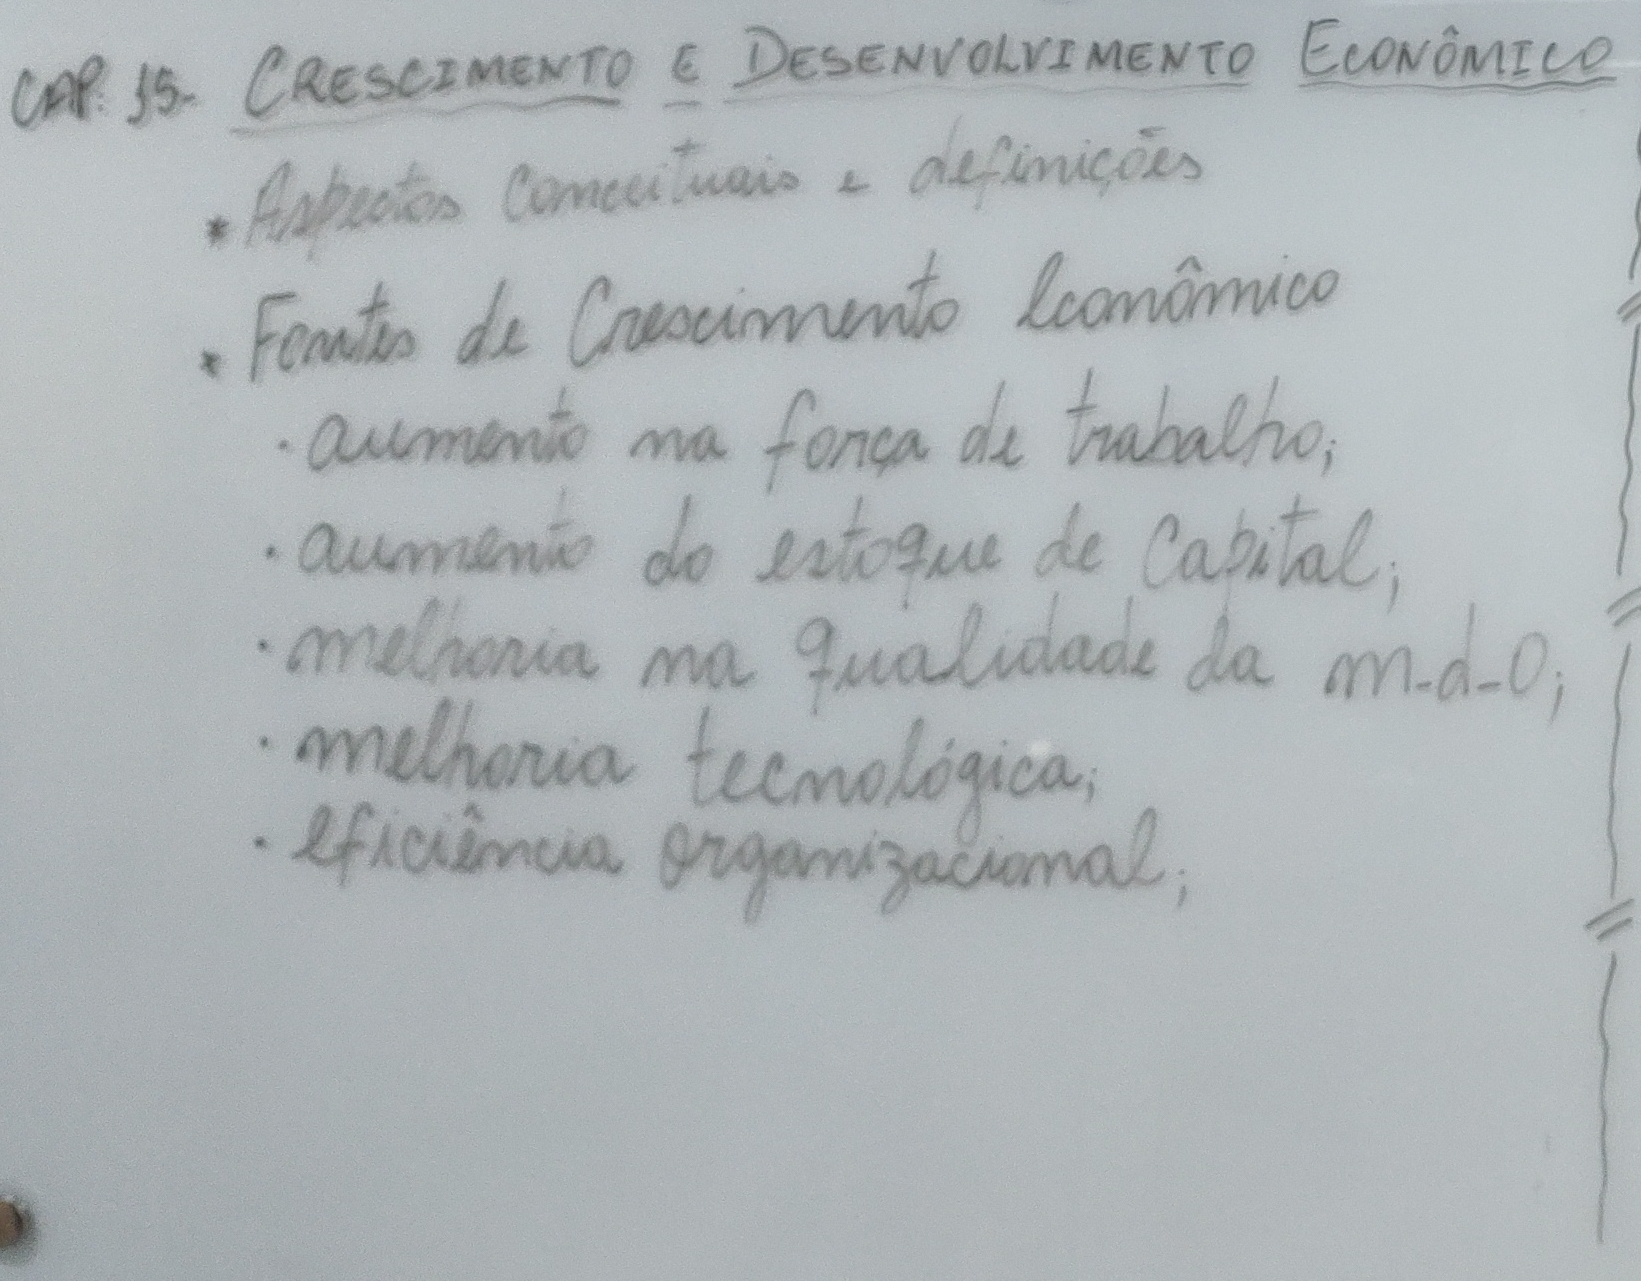 CAP. 15- CRESCIMENTO E DESENVOLVIMENTO ECONÔMICO
* Aspectos Conceituais e definições
* Fontes de Crescimento Econômico
· aumento na força de trabalho;
· aumento do estoque de Capital;
· melhoria na qualidade da m-d-O;
· melhoria tecnológica;
· eficiência organizacional;